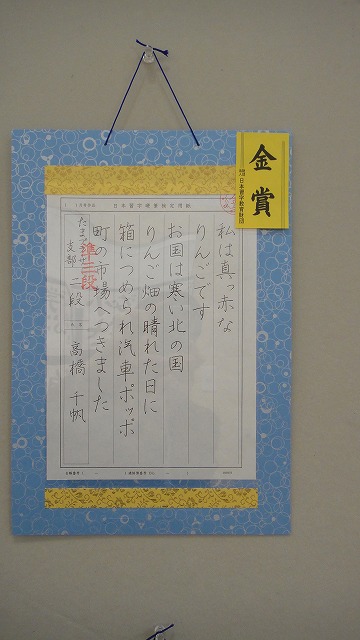 金賞
公益財団法人 日本習字教育財団
日本習字硬筆検定用紙
私は真っ赤な
りんごです
お国は寒い北の国
りんご畑の晴れた日に
箱につめられ汽車ポッポ
町の市場へつきました
準三段
支部
二段
高橋 千帆